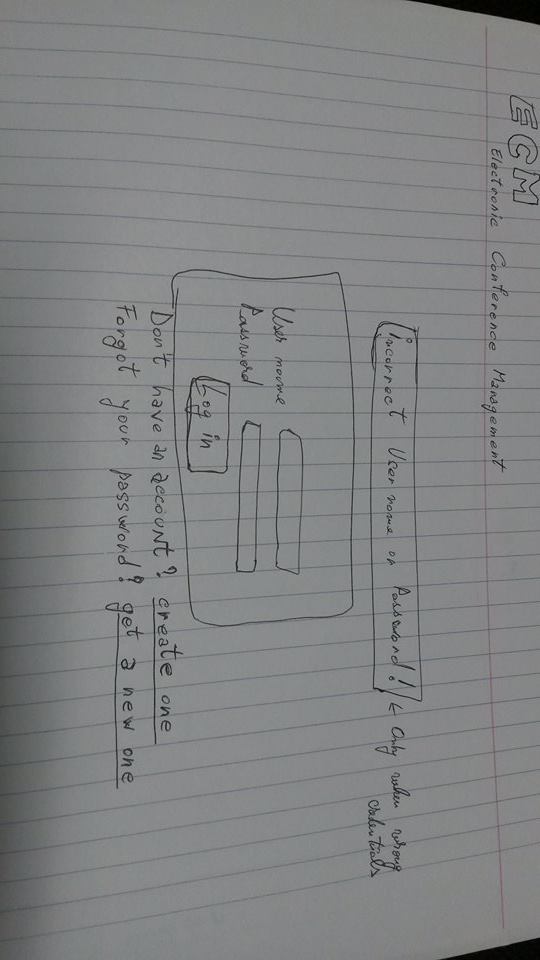 ECM
Electronic Conference Management
Incorrect Username or Password! ← Only when wrong credentials
Username
Password
Log in
Don't have an account? create one
Forgot your password? get a new one